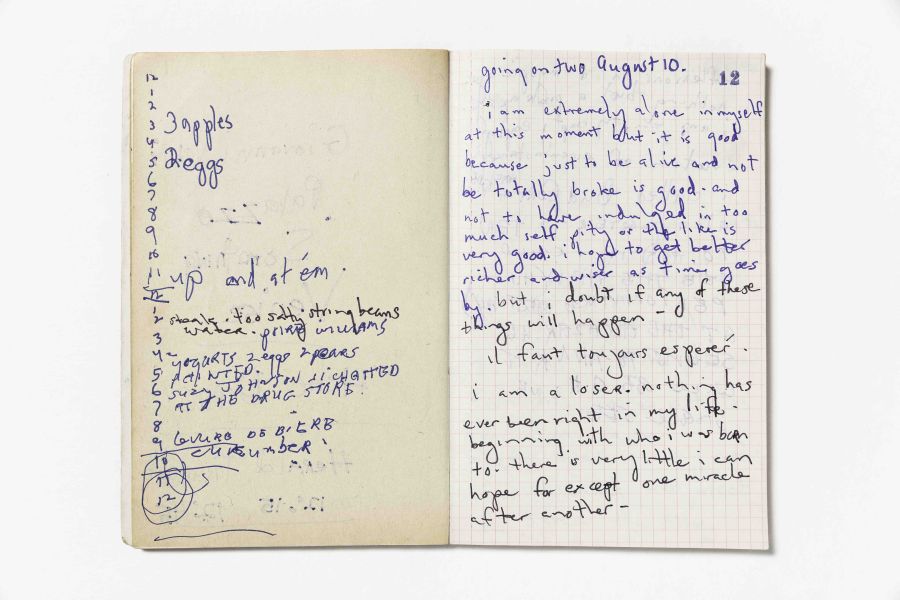 12
1
2
3
4
5
6
7
8
9
10
11
12
1
2
3
4
5
6
7
8
9
10
11
12
3 apples
2 eggs
up and at ém.
steak. too salty. string beams
water. poire williams
yogurts 2 eggs 2 pears
PAINTED.
SUZY JOHNSON + i CHATTED
AT THE DRUG STORE.
LEVURE DE BIERE
CUKUMBER
12
going on two August 10.
i am extremely alone in myself
at this moment but it is good
because just to be alive and not
be totally broke is good. and
not to have indulged in too
much self pity or the like is
very good. i hope to get better
richer and wiser as time goes
by. but i doubt if any of these
things will happen —
il faut toujours esperer.
i am a loser. nothing has
ever been right in my life.
beginning with who i was born
to. there is very little i can
hope for except one miracle
after another —